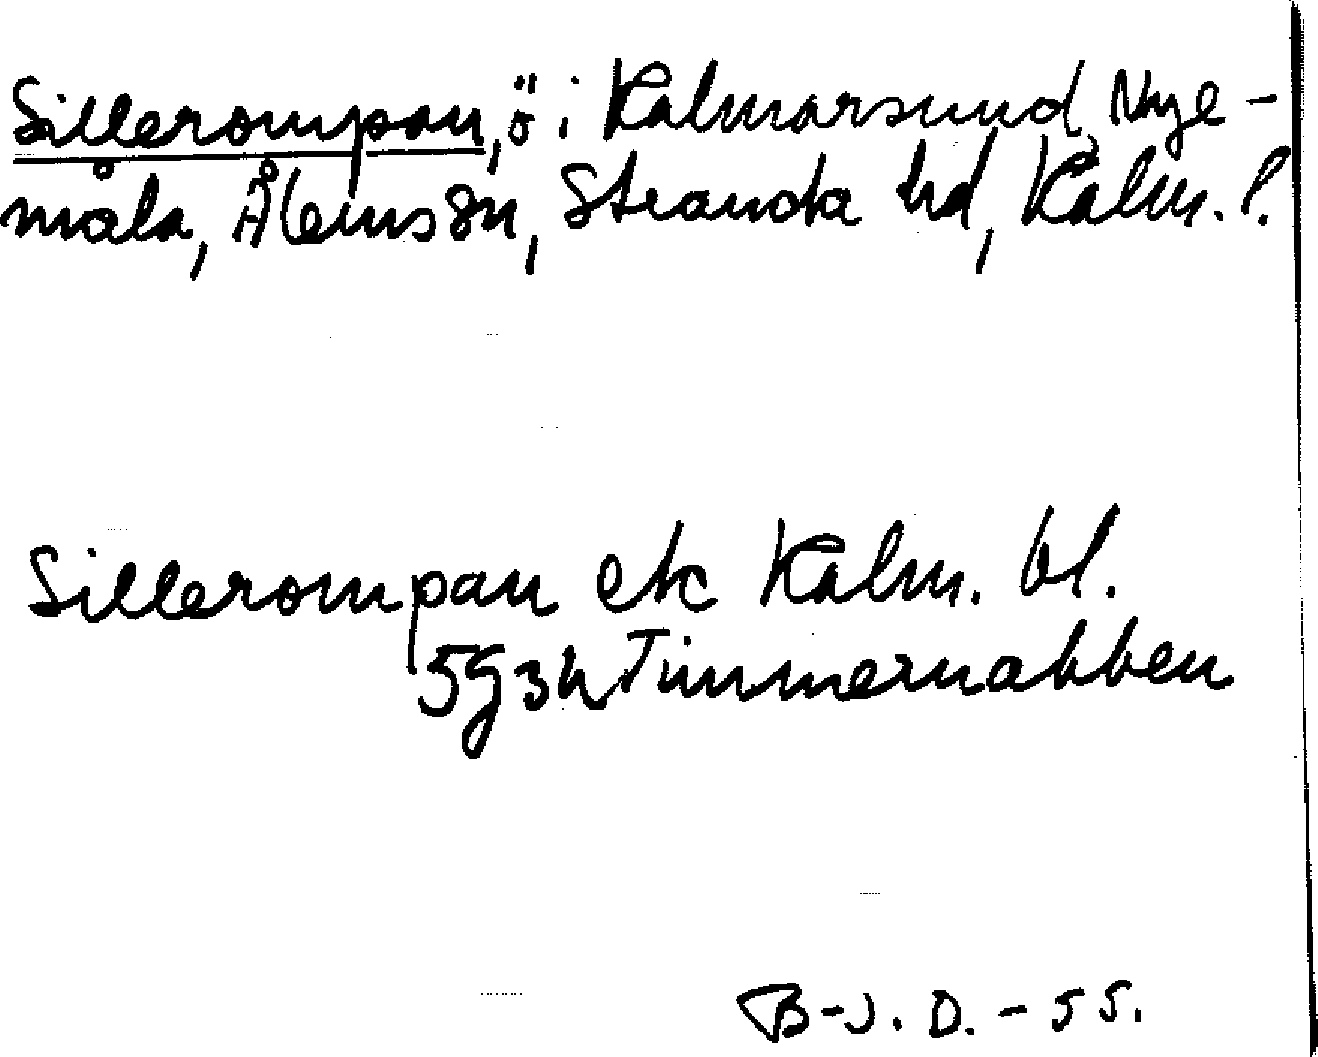 Sillerompan, ö i Kalmarsund, Nye-
måla, Ålems sn, Stranda hd, Kalm. l.
Sillerompan ek Kalm. bl.
5g34 Timmernabben
B-J. D. - 55.